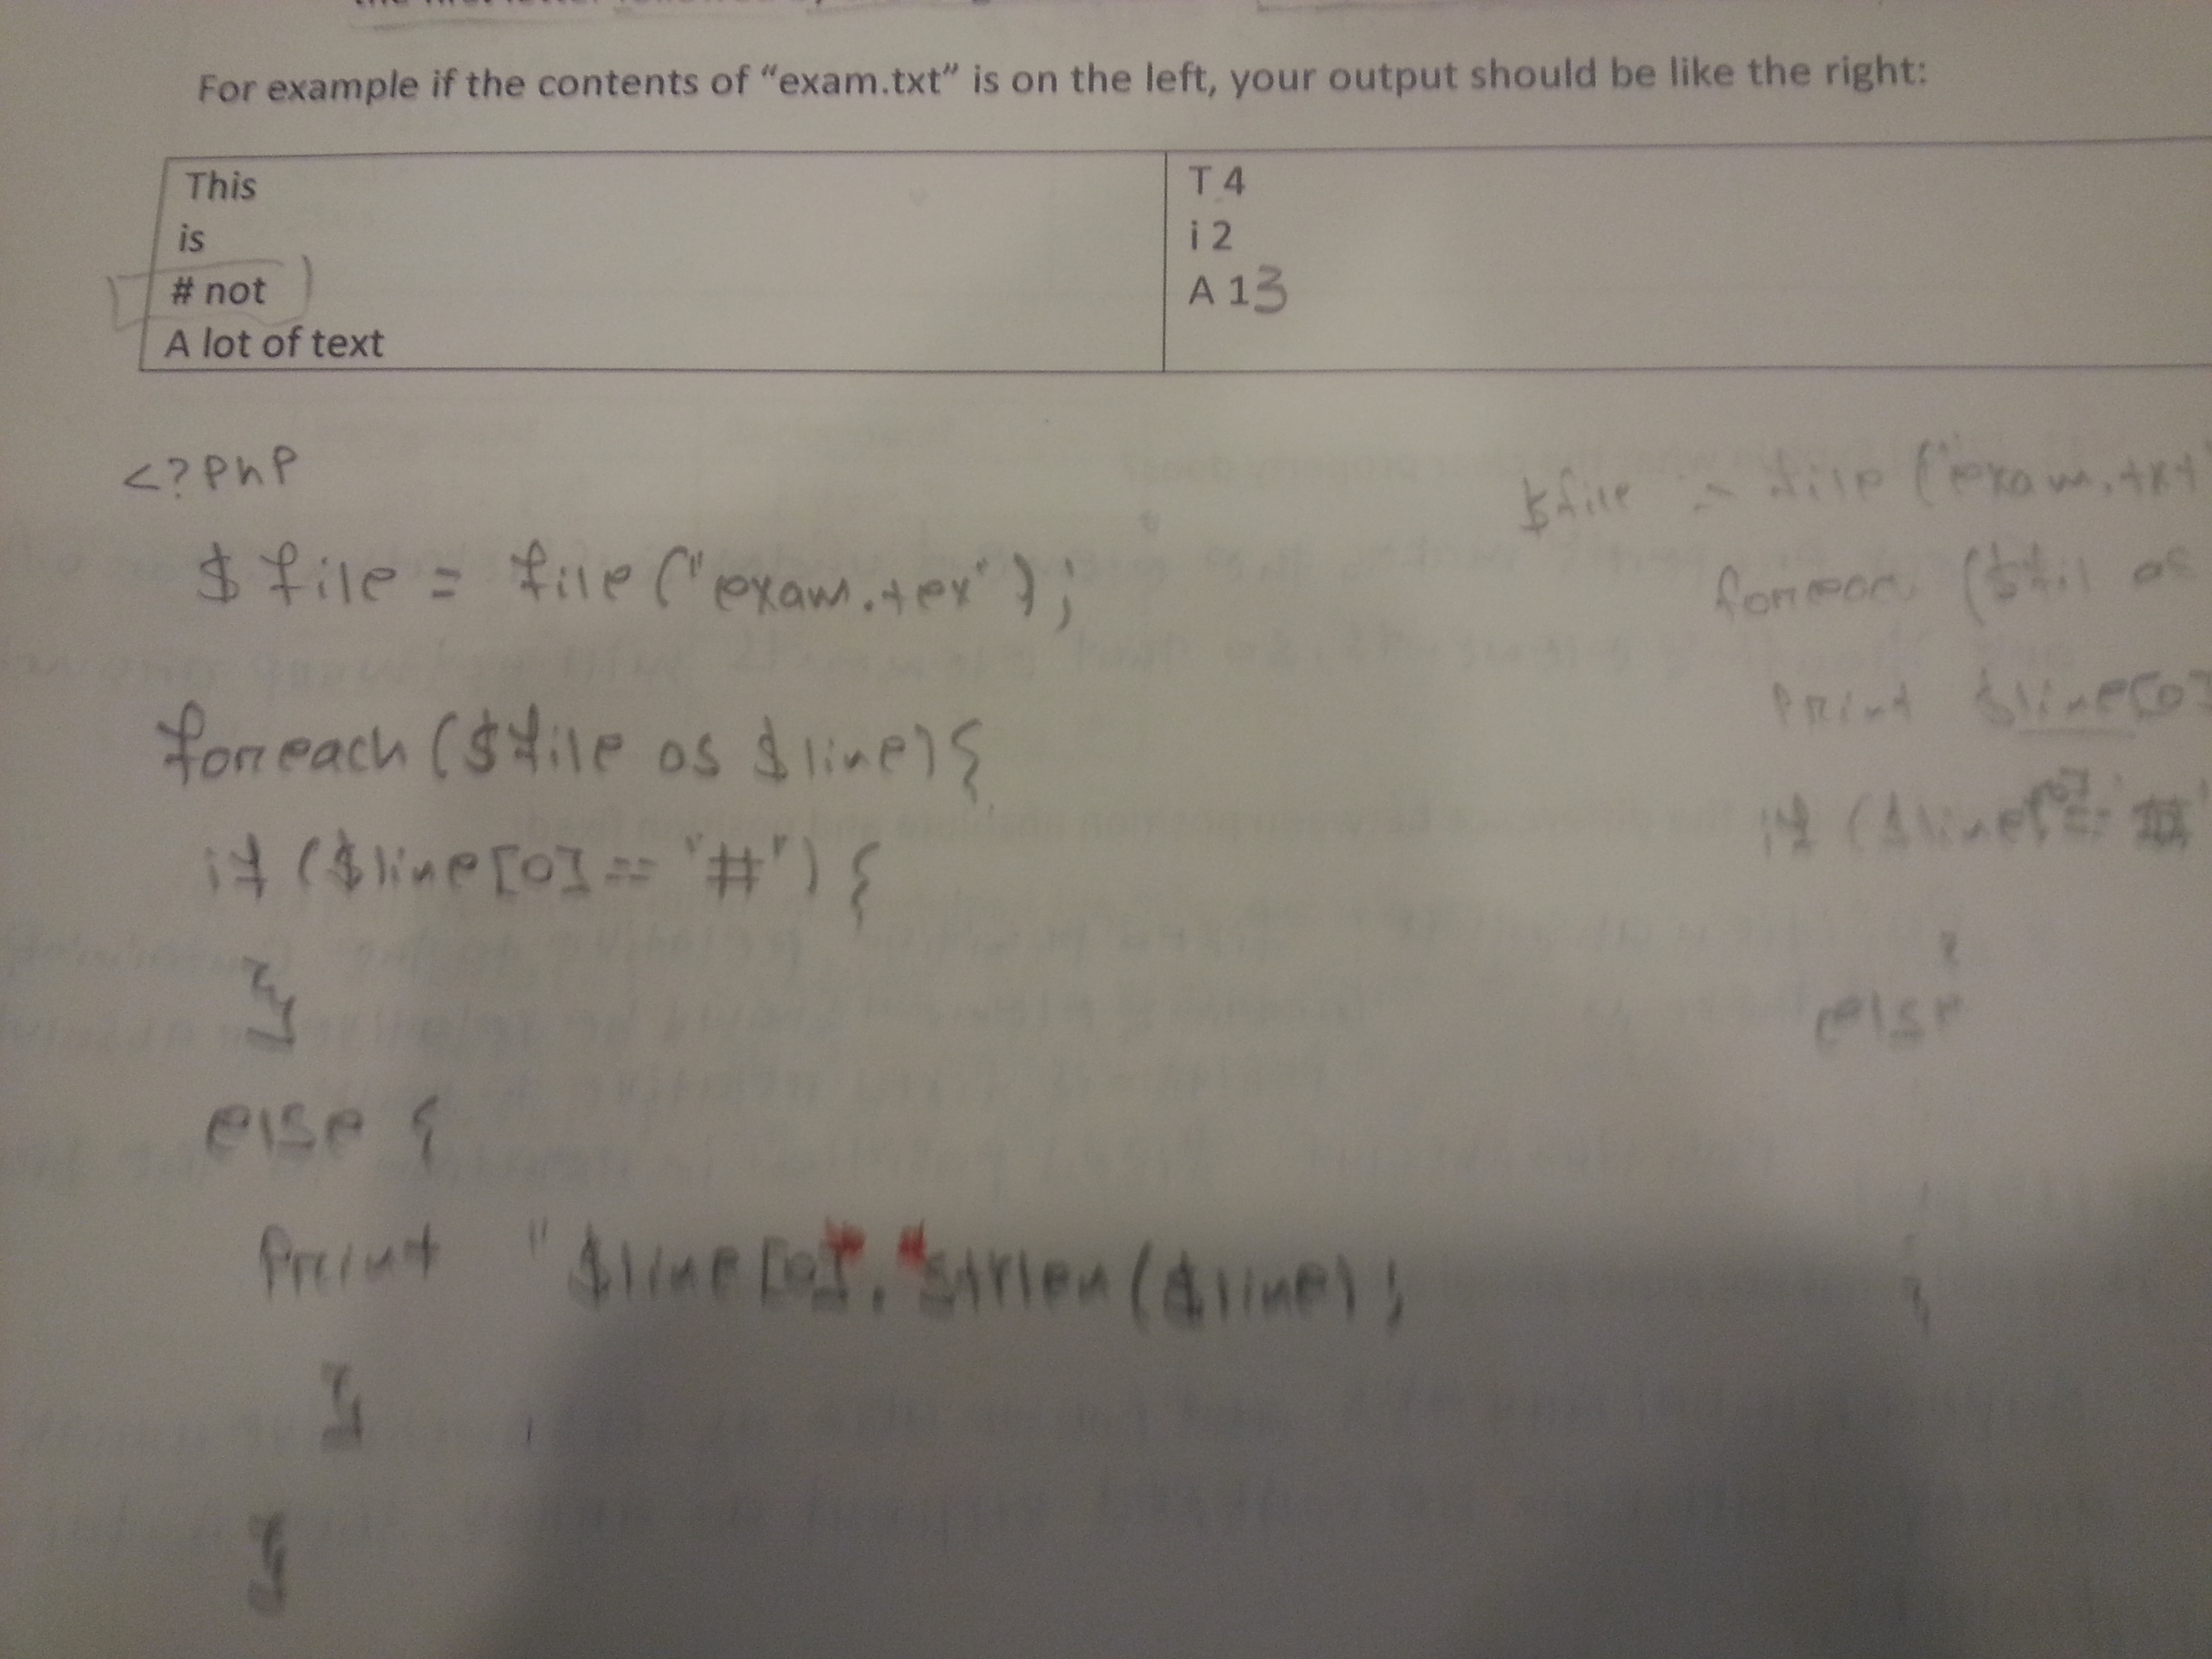 For example if the contents of “exam.txt” is on the left, your output should be like the right:
This
is
# not
A lot of text
T 4
i 2
A 13
<?php
$file = file("exam.tex");
foreach ($file as $line) {
if ($line[0] == "#") {
}
else {
print "$line[0]". "strlen($line);
}
}
$file = file ("exam.txt"
foreac ($fil as
print $line[0]
if ($line[0] == "#"
}
else